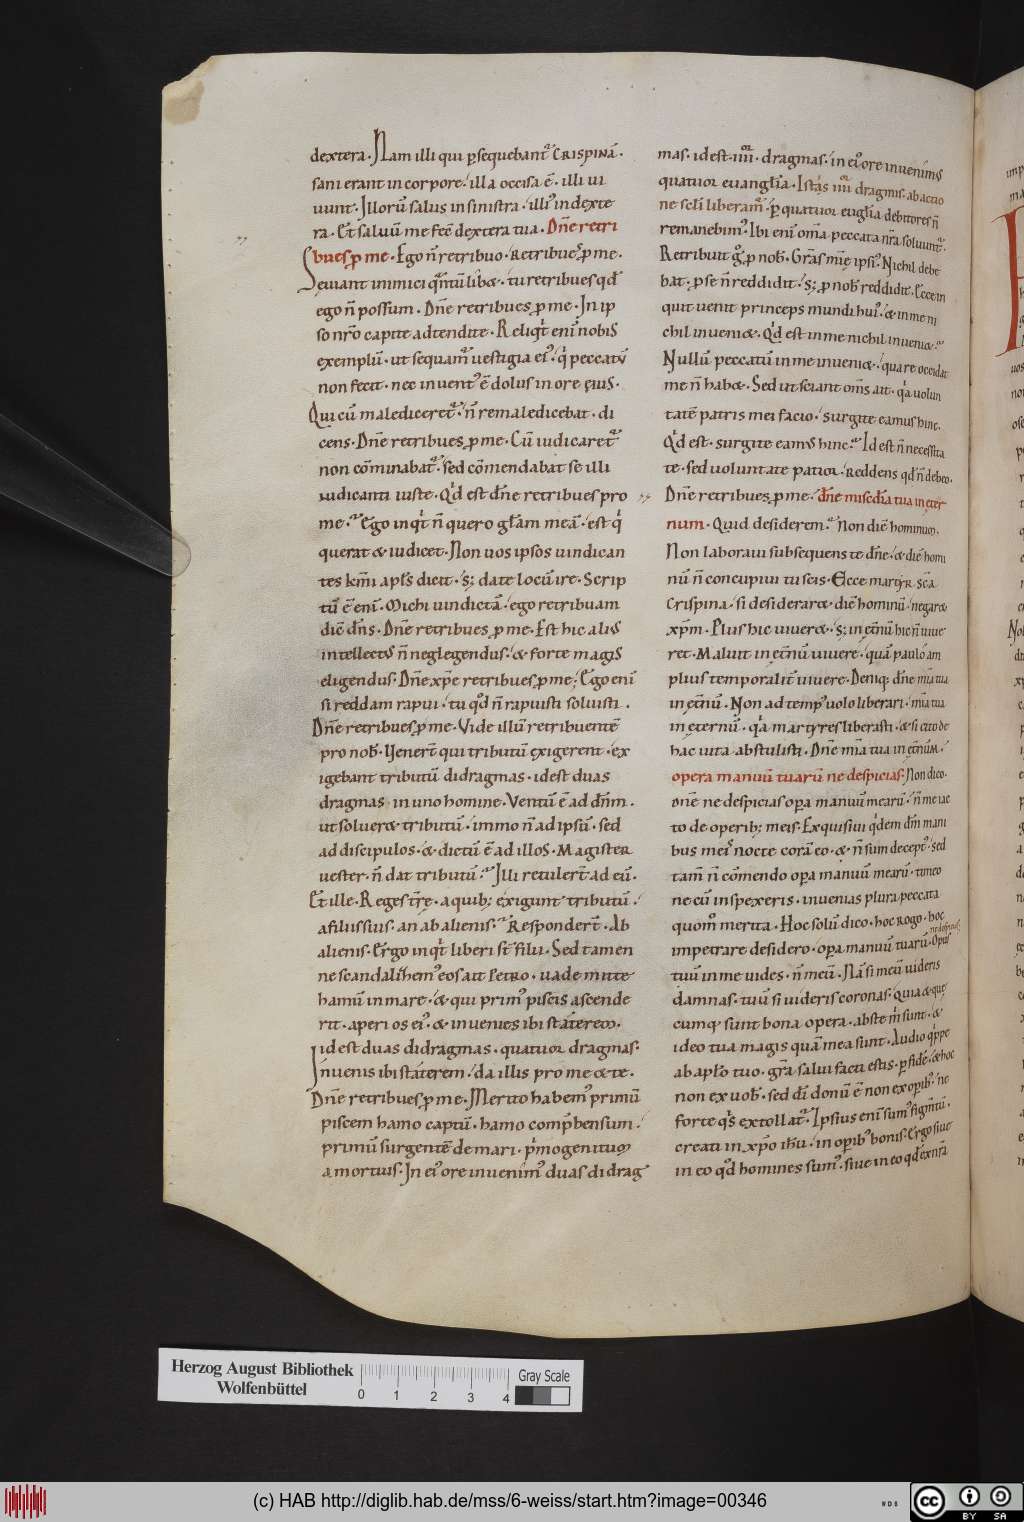 dextera. Nam illi qui ꝑsequebant᷑ CRISPINĀ.
sani erant in corpore. illa occisa ē. illi ui
uunt. Illorū salus in sinistra. illiꝰ in dexte
ra. Et saluū me fec̄ dextera tua. Dn̄e retri
bues ꝓ me. Ego n̄ retribuo. Retribues ꝓ me.
Sęuiant inimici qm̄tūlib&. tu retribues qđ
ego n̄ possum. Dn̄e retribues ꝓ me. In ip
so nr̄o capite adtendite. Reliqͥt eniꝫ nobis
exemplū. ut sequamᷣ uestigia eiꝰ. qͥ peccatū
non fecit. nec inuentꝰ ē dolus in ore ęius.
Qui cū malediceret᷑. n̄ remaledicebat. di
cens. Dn̄e retribues ꝓ me. Cū iudicaret᷑
non cōminabat᷑. sed cōmendabat se illi
iudicanti iuste. Qͥd est dn̄e retribues pro
me. Ego inqͥt n̄ quero gl̄am meā. est qͥ
querat & iudicet. Non uos ipsos uindican
tes km̄i apl̄s dicit. sꝫ date locū ire. Scrip
tū ē eni. Michi uindictā. ego retribuam
dic̄ dn̄s. Dn̄e retribues ꝓ me. Est hic aliꝰ
intellectꝰ n̄ neglegendus. & forte magis
eligendus. Dn̄e xp̄e retribues ꝓ me; Ego eni
si reddam rapui. tu qđ n̄ rapuisti soluisti.
Dn̄e retribues ꝓ me. Vide illū retribuentē
pro nob̄. Venert̄ qui tributū ęxigerent. ex
igebant tributū didragmas. id est duas
dragmas in uno homine. Ventū ē ad dn̄m.
ut soluer& tributū. immo n̄ ad ipsū. sed
ad discipulos. & dictū ē ad illos. Magister
uester. n̄ dat tributū. Illi retulert̄ ad eū.
Et ille. Reges tr̄ę. a quibꝫ exigunt tributū.
a filiis suis. an ab alienis. Respondert̄. Ab
alienis. Ergo inqͥt liberi st̄ filii. Sed tamen
ne scandalizhemꝰ eos ait PETRO. uade mitte
hamū in mare. & qui primꝰ piscis ascende
rit. aperi os eiꝰ. & inuenies ibi státerem.
id est duas didragmas. quatuor dragmas.
Inuenis ibi státerem. da illis pro me & te.
Dn̄e retribues ꝓ me. Merito habemꝰ primū
piscem hamo captū. hamo comp̄hensum.
primū surgentē de mari. pͥmogenitum
a mortuis. In eiꝰ ore inuenimꝰ duas didrag
mas. id est .iiii. dragmas. in eiꝰ ore inuenimꝰ
quatuor euanglīa. Istas iiii dragmis. ab actio
ne scl̄i liberamᷣ. ꝑ quatuor euglīa debitores n̄
remanebimꝰ. Ibi eni om̄a peccata nr̄a soluunt᷑.
Retribuit gͦ ꝓ nob̄. Gr̄as mīe ipsiꝰ. Nichil debe
bat. ꝓ se n̄ reddidit. sꝫ ꝓ nob̄ reddidit. Ecce in
quit uenit princeps mundi huiꝰ. & in me ni
chil inueni&. Qͥd est in me nichil inueni&.
Nullū peccatū in me inueni&. quare occidat
me n̄ hab&. Sed ut sciant om̄s ait. qͥa uolun
tatē patris mei facio. surgite eamus hinc.
Qͥd est. surgite eamꝰ hinc. Id est n̄ necessita
te. sed uoluntate patior. Reddens qđ n̄ debeo.
Dn̄e retribues ꝓ me. dn̄e misc̄dīa tua in ęter
num. Quid desiderem. Non diē hominum.
Non laboraui subsequens te dn̄e. & diē homi
nū n̄ concupiui tu scis. Ecce martyr sc̄a
Crispina. si desiderar& diē hominū. negar&
xp̄m. Plus hic uiuer&. sꝫ in ęt̄nū hic n̄ uiue
ret. Maluit in ęt̄nū uiuere. quā paulo am
plius temporalit̄ uiuere. Deniqꝫ dn̄e mīa tua
in ęt̄nū. Non ad tempꝰ uolo liberari. mīa tua
in ęternū. qͥa martyres liberasti. & si cito de
hac uita abstulisti. Dn̄e mīa tua in ęt̄nūm.
opera manuū tuarū ne despicias. Non dico.
dn̄e ne despicias oꝑa manuū mearū. n̄ me iac
to de operibꝫ meis. Exquisiui qͥdem dn̄m mani
bus meis nocte corā eo. & n̄ sum deceptꝰ. sed
tam̄ n̄ cōmendo oꝑa manuū mearū. timeo
ne cū inspexeris. inuenias plura peccata
quom̊ merita. Hoc solū dico. hoc rogo. hoc
impetrare desidero. oꝑa manuū tuarū ne despicias. Opus
tuū in me uides. n̄ meū. Nā si meū uideris
damnas. tuū si uideris coronas. Quia & quę
cumqꝫ sunt bona opera. abs te m̄ sunt. &
ideo tua magis quā mea sunt. Audio qͥppe
ab apl̄o tuo. gr̄a salui facti estis. ꝑ fidē. & hoc
non ex uob̄. sed dī donū ē non ex opib̄. ne
forte qͥs extollat᷑. Ipsius eni sumꝰ figm̄tū.
creati in xp̄o ih̄u. in opib̄ bonis. Ergo siue
in eo qđ homines sumꝰ. siue in eo qđ ex nr̄a
Herzog August Bibliothek
Wolfenbüttel
0 1 2 3 4
Gray Scale
(c) HAB http://diglib.hab.de/mss/6-weiss/start.htm?image=00346
WDB
cc BY SA